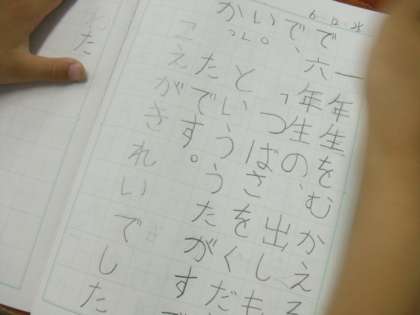 6.12.25
一年生をむかえる
で六年生の、出しも
で、「つばさをくだ
い。といううたがす
かったです。
こえがきれいでした
た